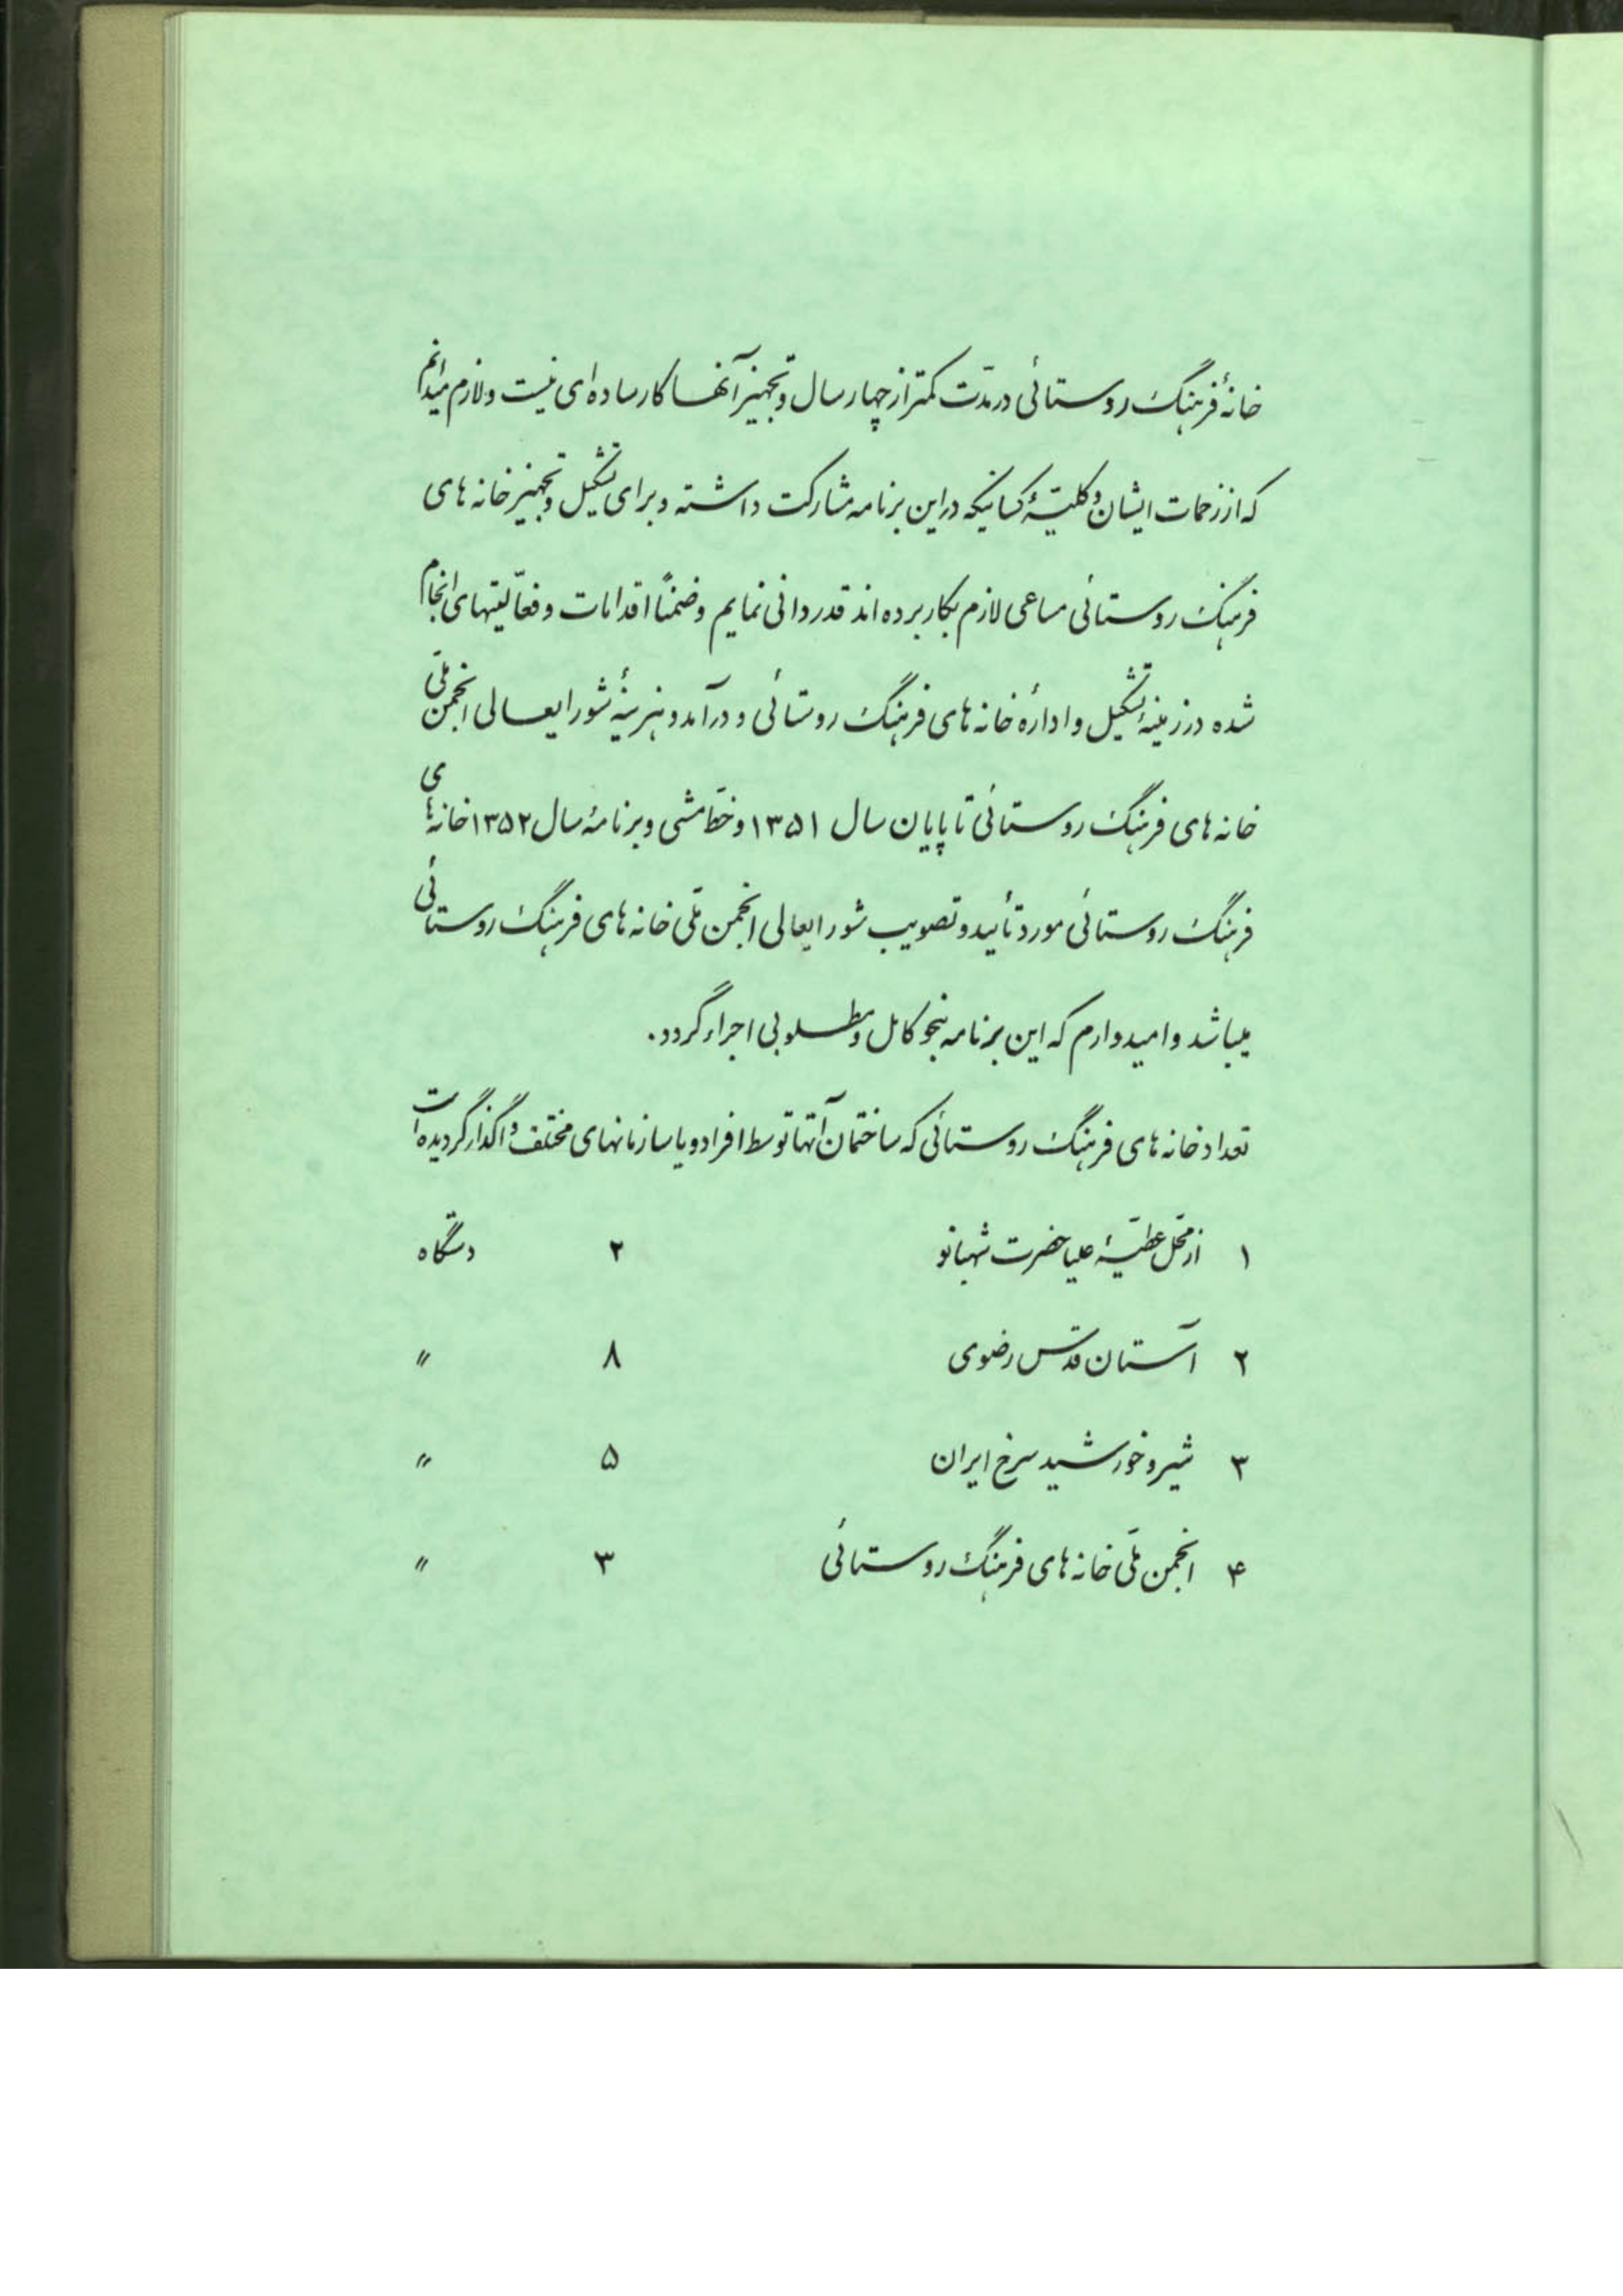 خانهٔ فرهنگ روستائی در مدّت کمتر از چهار سال و تجهیز آنها کار ساده‌ای نیست و لازم میدانم
که از زحمات ایشان و کلیّهٔ کسانیکه در این برنامه مشارکت داشته و برای تشکیل و تجهیز خانه های
فرهنگ روستائی مساعی لازم بکار برده اند قدردانی نمایم و ضمناً اقدامات و فعّالیتهای انجام
شده در زمینهٔ تشکیل و ادارهٔ خانه های فرهنگ روستائی و درآمد و هزینهٔ شورایعالی انجمن ملّی
خانه های فرهنگ روستائی تا پایان سال ۱۳۵۱ و خطّ مشی و برنامهٔ سال ۱۳۵۲ خانه های
فرهنگ روستائی مورد تأیید و تصویب شورایعالی انجمن ملّی خانه های فرهنگ روستائی
میباشد و امیدوارم که این برنامه بنحو کامل و مطلوبی اجراء گردد.
تعداد خانه های فرهنگ روستائی که ساختمان آنها توسط افراد و یا سازمانهای مختلف واگذار گردیده است
۱ از محّل عطیّهٔ علیاحضرت شهبانو ۲ دستگاه
۲ آستان قدّس رضوی ۸〃
۳ شیر و خورشید سرخ ایران ۵ 〃
۴ انجمن ملّی خانه های فرهنگ روستائی ۳ 〃